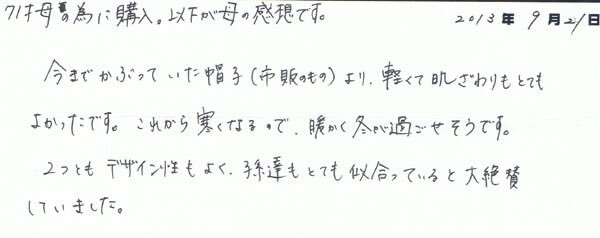 71才母の為に購入。以下が母の感想です。
2013年9月21日
今までかぶっていた帽子(市販のもの)より、軽くて肌ざわりもとても
よかったです。これから寒くなるので、暖かく冬が過ごせそうです。
2つともデザイン性もよく、孫達もとても似合っていると大絶賛
していました。